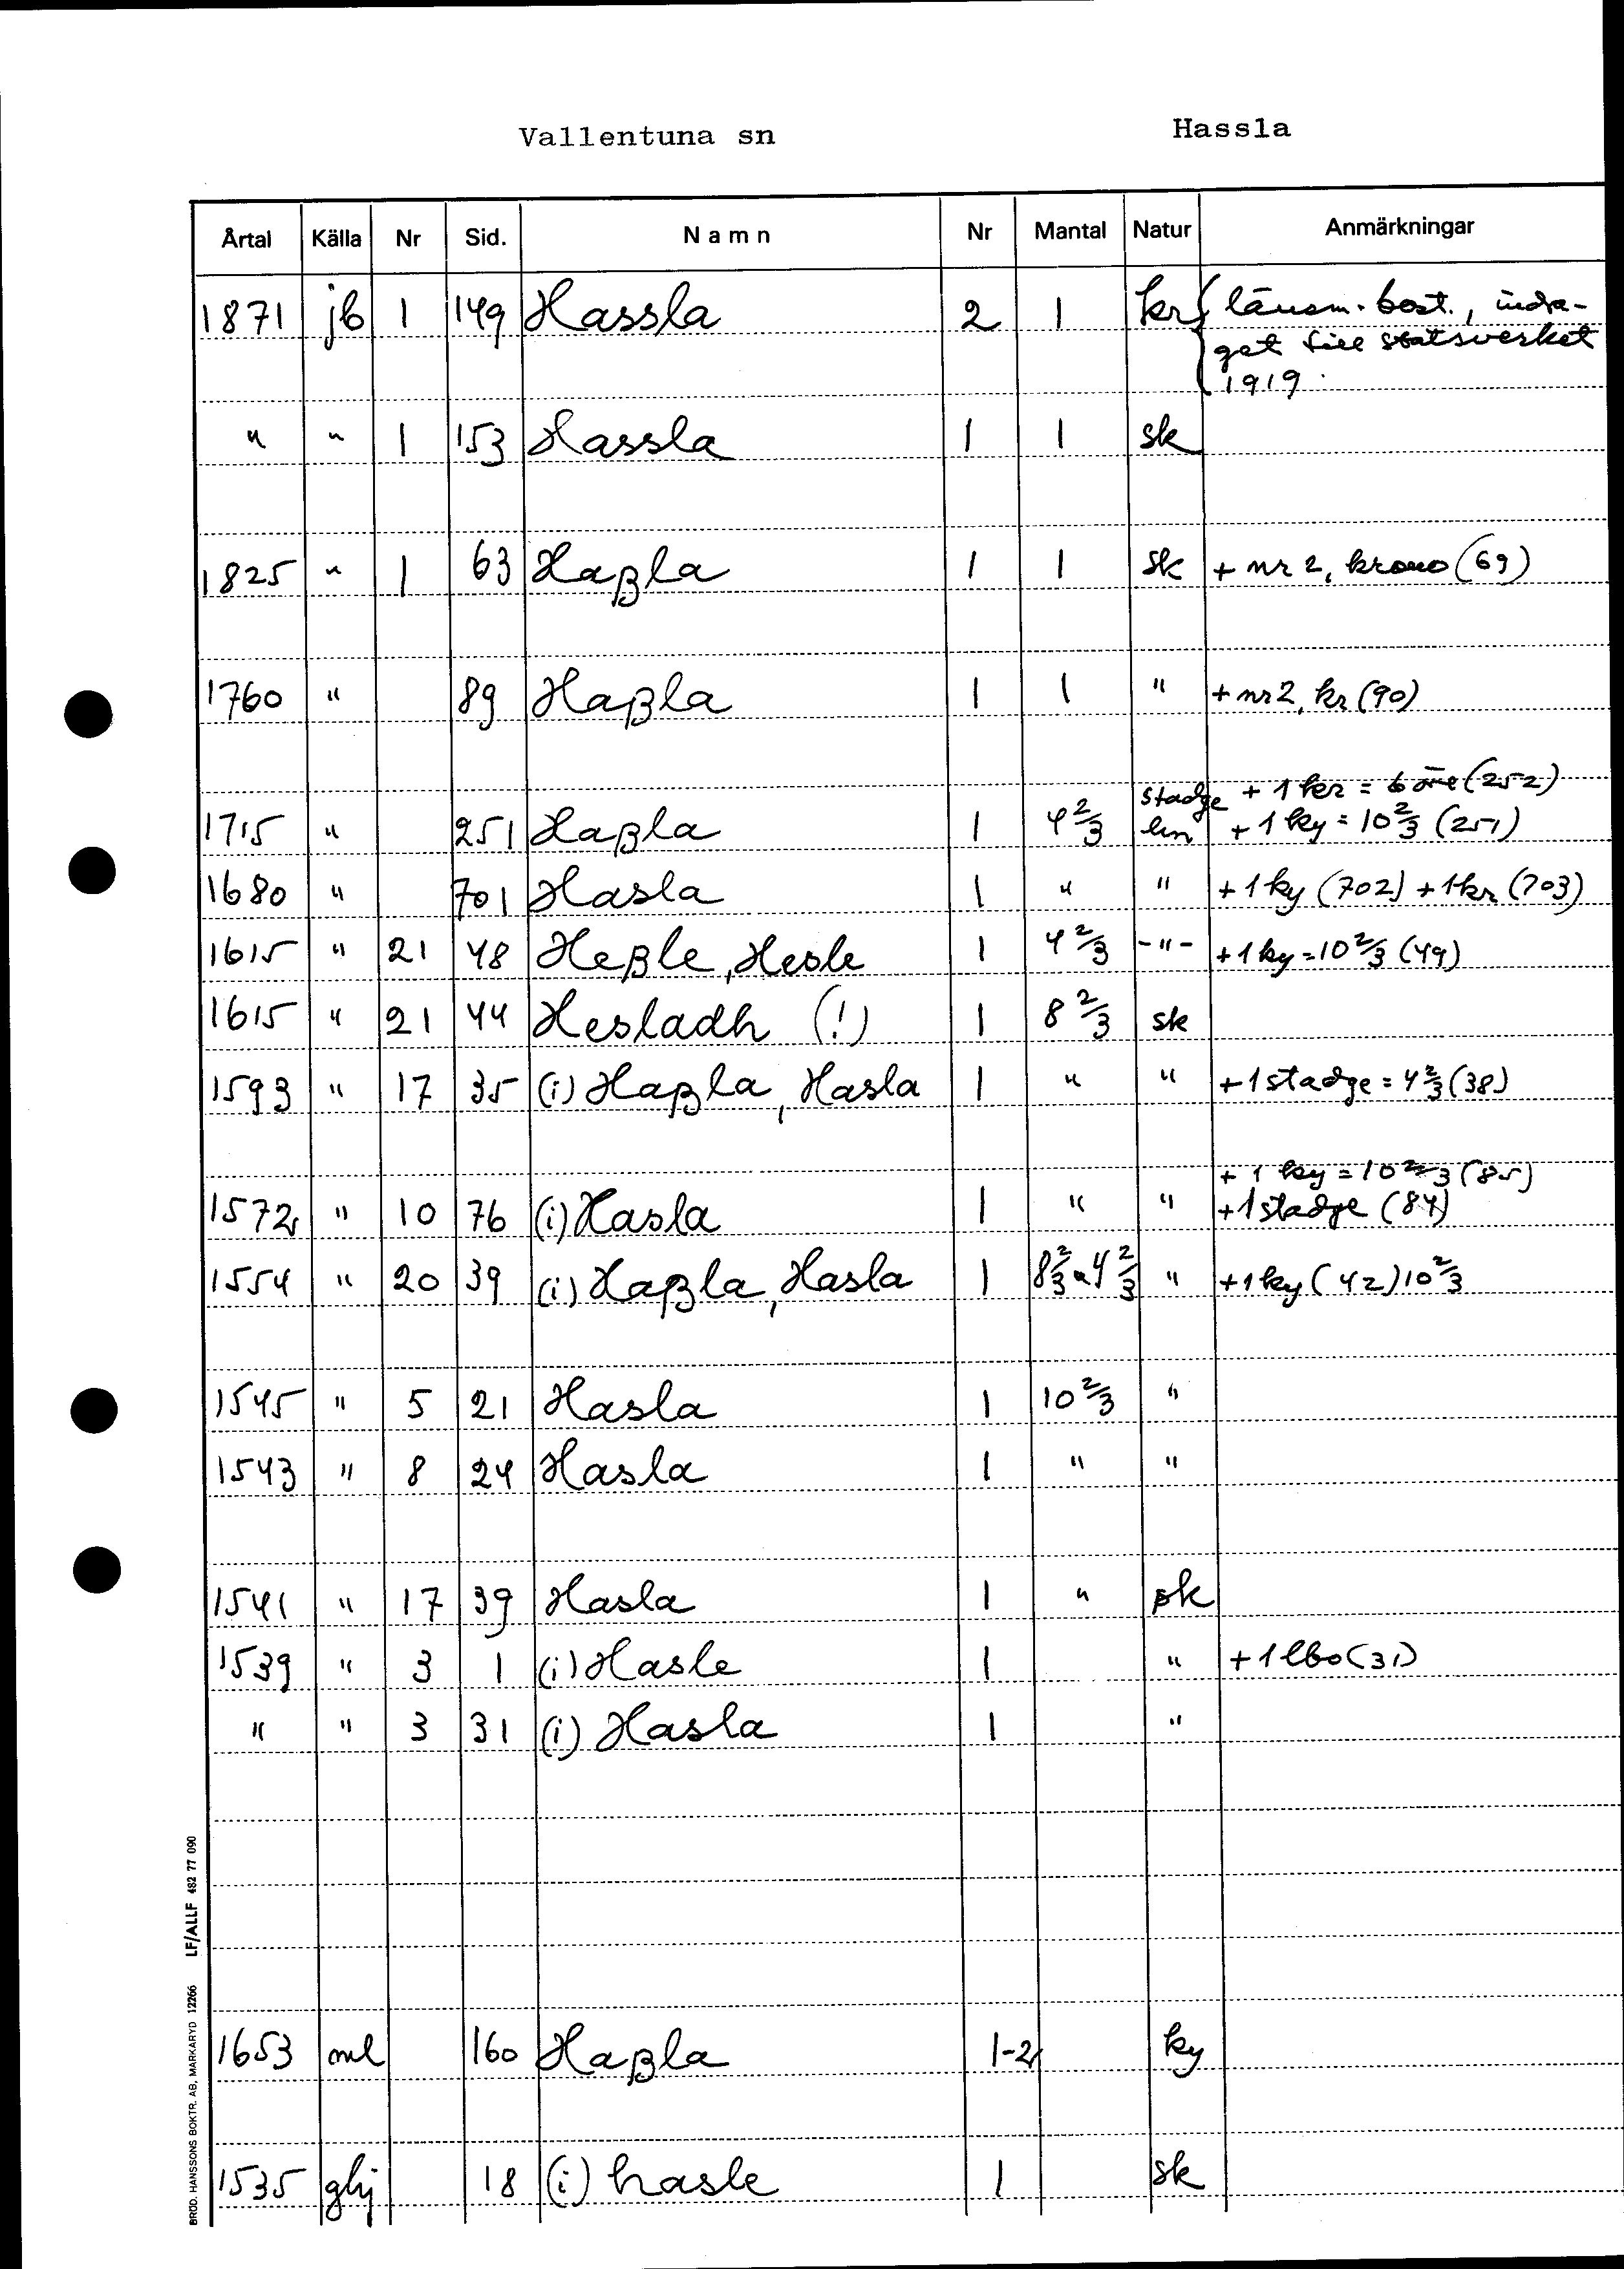 Vallentuna sn Hassla
Årtal Källa Nr Sid. Namn Nr Mantal Natur Anmärkningar
1871 jb 1 149 Hassla 2 1 kr länsm. bost., indra-
get till statsverket
1919.
" " 1 153 Hassla 1 1 sk
1825 " 1 63 Haßla 1 1 sk + nr 2, krono (69)
1760 " 89 Haßla 1 1 " + nr 2, kr (90)
stadge + 1 kr = 6 öre (252)
1715 " 251 Haßla 1 4 2/3 len + 1 ky = 10 2/3 (251)
1680 " 701 Hasla 1 " " + 1 ky (702) + 1 kr (703)
1615 " 21 48 Heßle, Hesle 1 4 2/3 -"- + 1 ky = 10 2/3 (49)
1615 " 21 44 Hesladh (!) 1 8 2/3 sk
1593 " 17 35 (i) Haßla, Hasla 1 " " + 1 stadge = 4 2/3 (38)
+ 1 ky = 10 2/3 (85)
1572 " 10 76 (i) Hasla 1 " " + 1 stadge (84)
1554 " 20 39 (i) Haßla, Hasla 1 8 2/3 a 4 2/3 " + 1 ky (42) 10 2/3
1545 " 5 21 Hasla 1 10 2/3 "
1543 " 8 24 Hasla 1 " "
1541 " 17 39 Hasla 1 " sk
1539 " 3 1 (i) Hasle 1 " + 1 lbo (31)
" " 3 31 (i) Hasla 1 "
1653 ml 160 Haßla 1-2 ky
1535 ghj 18 (i) hasle 1 sk
BROD. HANSSONS BOKTR. AB, MARKARYD 12266 LF/ALLF 482 77 090